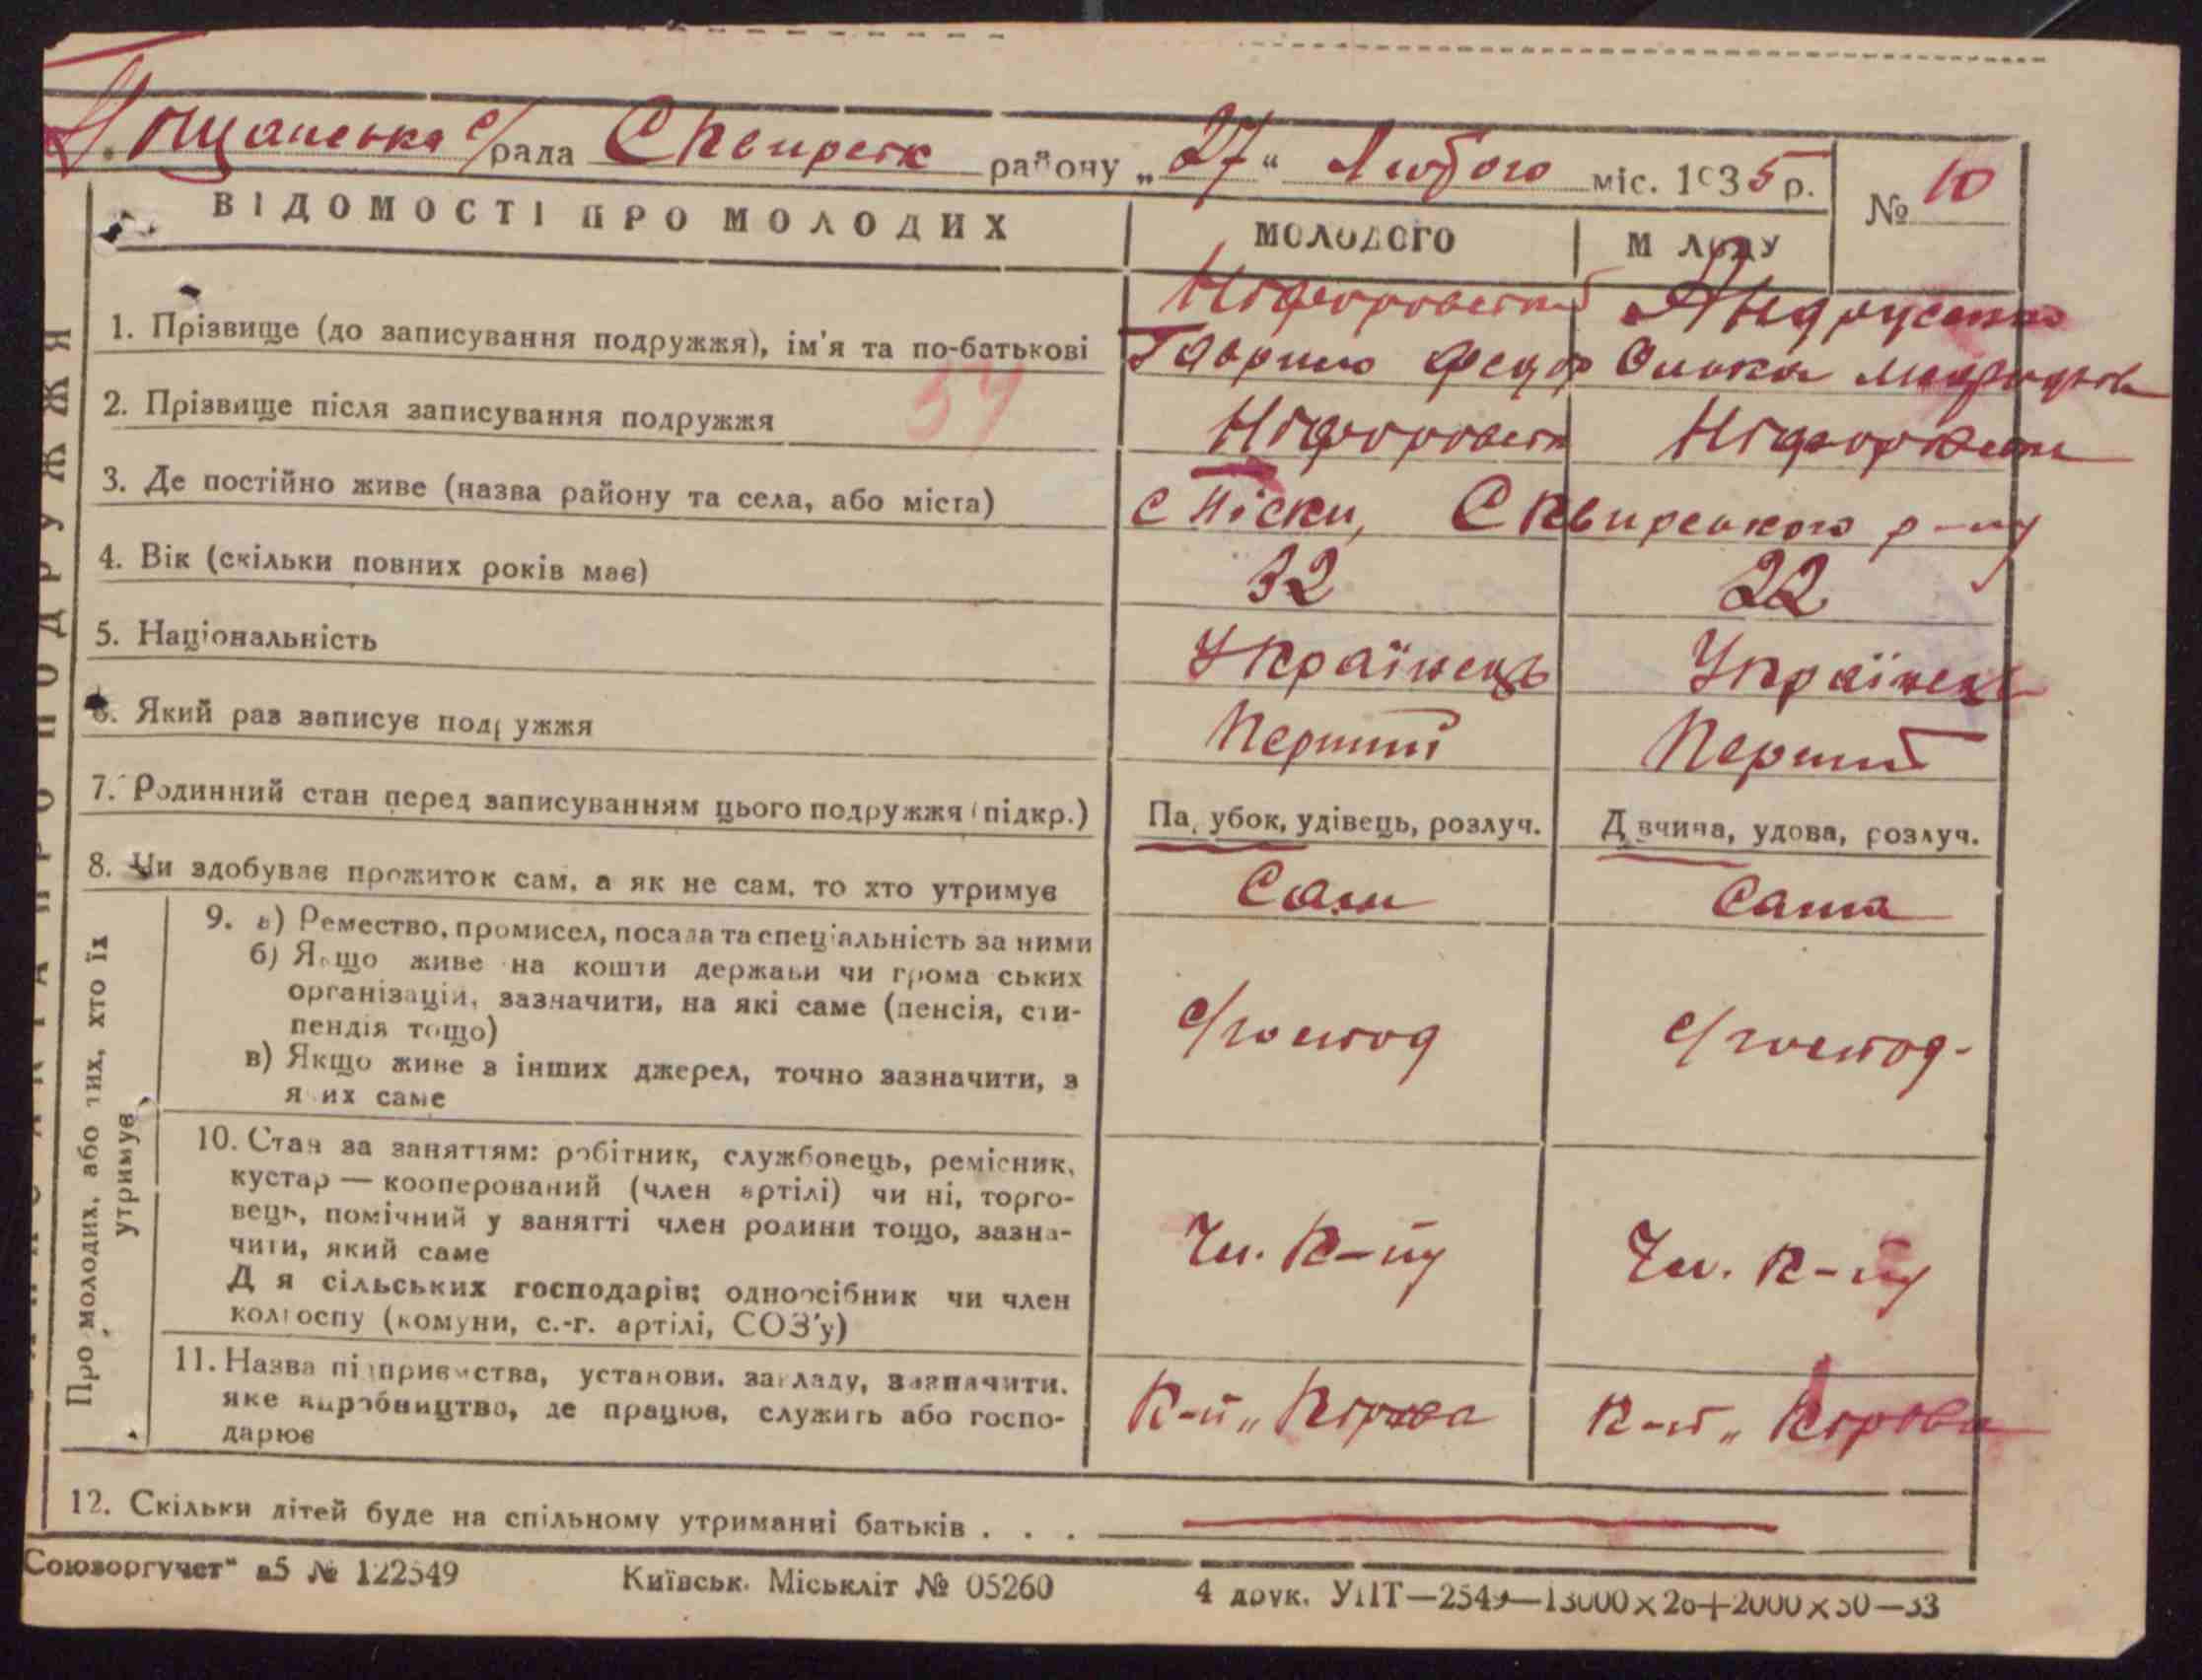 Пищанська с/рада Сквирськ району „27“ Лютого міс. 1935 р. № 10
ВІДОМОСТІ ПРО МОЛОДИХ МОЛОДОГО МОЛОДУ
1. Прізвище (до записування подружжя), ім'я та по-батькові
2. Прізвище після записування подружжя
3. Де постійно живе (назва району та села, або міста) с Піски, Сквирського р-ну
4. Вік (скільки повних років має) 32 22
5. Національність Українець Українець
6. Який раз записує подружжя Перший Перший
7. Родинний стан перед записуванням цього подружжя (підкр.) Парубок, удівець, розлуч. Дівчина, удова, розлуч.
8. Чи здобуває прожиток сам, а як не сам, то хто утримує Сам Сама
Про молодих, або тих, хто їх
утримує
9. а) Ремество, промисел, посада та спеціальність за ними
б) Якщо живе на кошти держави чи громадських
організацій, зазначити, на які саме (пенсія, сти-
пендія тощо) с/господ с/господ-
в) Якщо живе з інших джерел, точно зазначити, з
яких саме
10. Стан за заняттям: робітник, службовець, ремісник,
кустар — кооперований (член артілі) чи ні, торго-
вець, помічний у занятті член родини тощо, зазна-
чити, який саме Чл. К-пу Чл. К-пу
Для сільських господарів: одноосібник чи член
колгоспу (комуни, с.-г. артілі, СОЗ'у)
11. Назва підприємства, установи, закладу, зазначити,
яке виробництво, де працює, служить або госпо- К-п „Кірова К-п „Кірова
дарює
12. Скільки дітей буде на спільному утриманні батьків . . .
Союзоргучет“ а5 № 122549 Київськ. Міськліт № 05260 4 друк. УПТ—2549—13000×20+2000×50—33